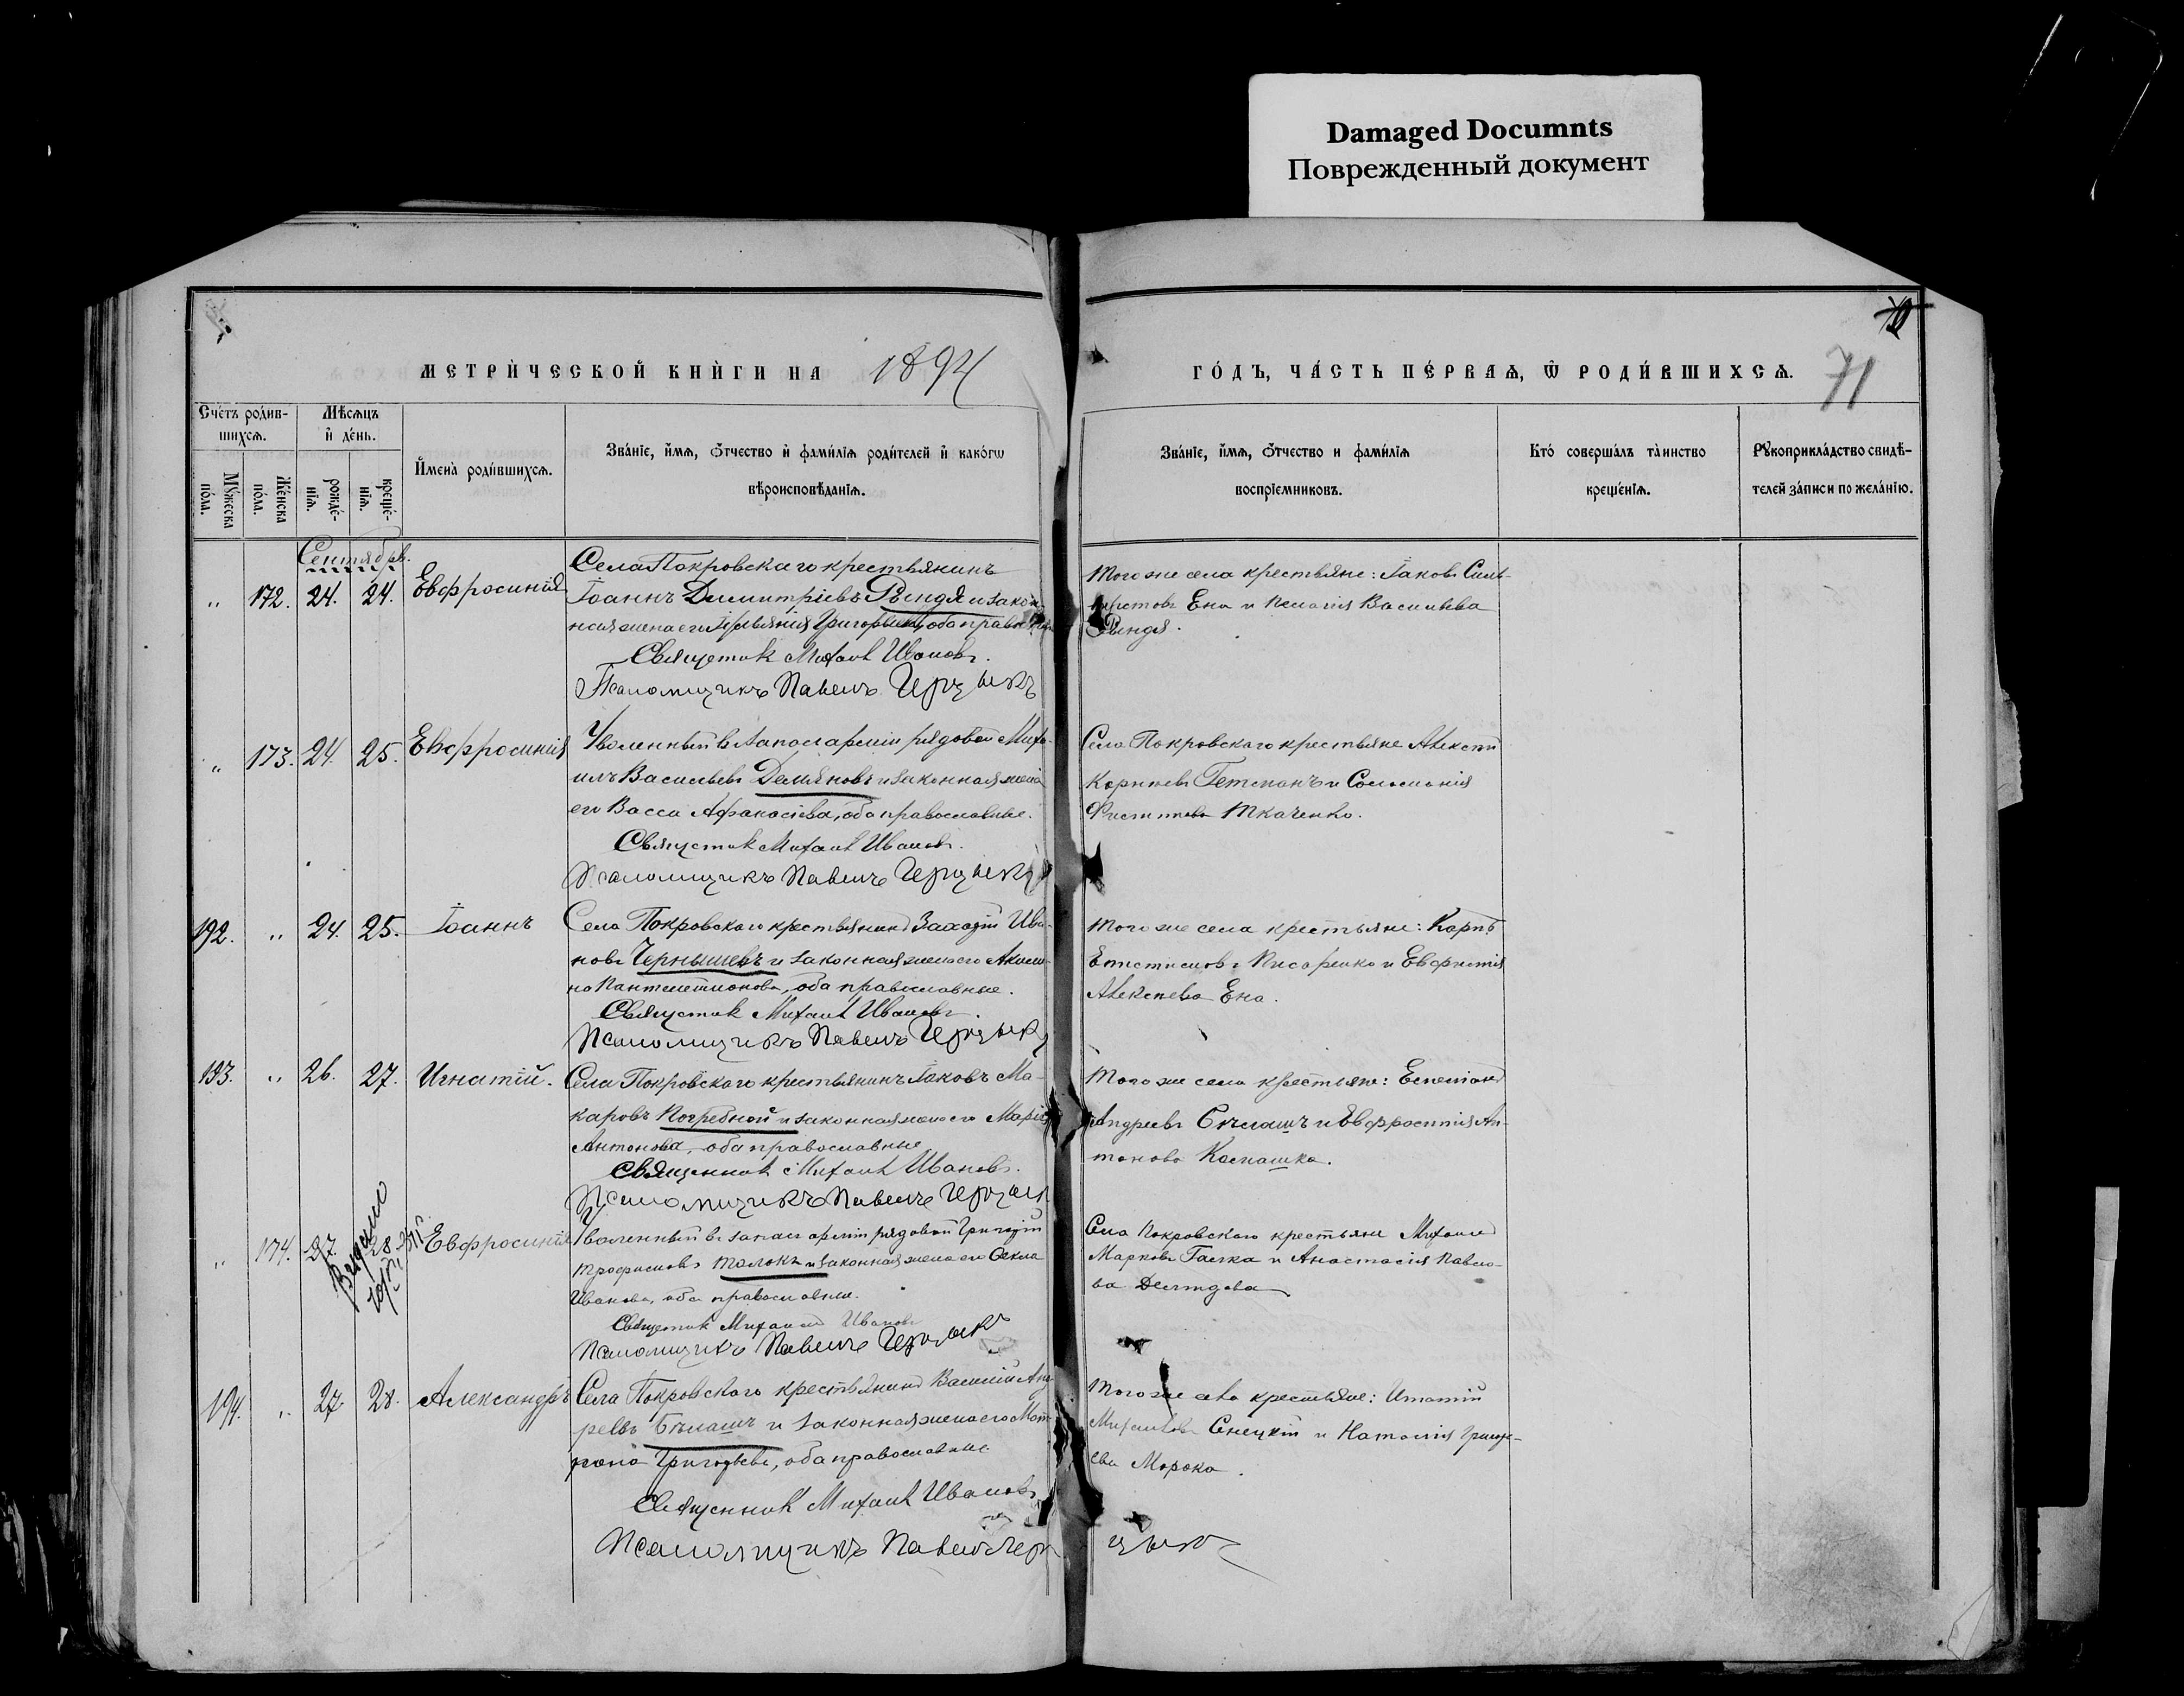 Damaged Documnts
Поврежденный документ
МЕТРИЧЕСКОЙ КНИГИ НА 1894
ГОДЪ, ЧАСТЬ ПЕРВАѦ, Ѿ РОДИВШИХСѦ. 71
Счетъ родив-
шихсѧ.
Мѣсѧцъ
и день.
Мужеска
пола.
Женска
пола.
рожде-
нїѧ.
креще-
нїѧ.
Имена родившихсѧ.
Званїе, имѧ, отчество и фамилїѧ родителей и какогѡ
вѣроисповѣданїѧ.
Званїе, имѧ, отчество и фамилїѧ
воспрїемниковъ.
Кто совершалъ таинство
крещенїѧ.
Рукоприкладство свидѣ-
телей записи по желанїю.
Сентябрь.
„ 172. 24. 24. Евфросинія
Села Покровскаго крестьянинъ
Іоаннъ Димитріевъ Рындя и закон-
ная жена его Григорьева, оба православные
Священник Михаил Иванов.
Псаломщикъ Павелъ Герцыкъ
Того же села крестьяне: Іаковъ
Ена и Пелагія Васильева
Рындя.
„ 173. 24. 25. Евфросинія
Уволенный в запас арміи рядовой Миха-
илъ Васильевъ Демяновъ и законная жена
его Васса Афанасіева, оба православные.
Священник Михаил Иванов.
Псаломщикъ Павелъ Герцыкъ
Села Покровскаго крестьяне Алексѣй
Корнѣевъ Гетманъ и Соломонія
Ткаченко.
192. „ 24. 25. Іоаннъ
Села Покровскаго крестьянинъ Захарій Ива-
новъ Чернышевъ и законная жена его Акили-
на Пантелеимонова, оба православные.
Священник Михаил Иванов.
Псаломщикъ Павелъ Герцыкъ
Того же села крестьяне: Карпъ
Писаренко и Евфимія
Алексѣева Ена.
193. „ 26. 27. Игнатій.
Села Покровскаго крестьянинъ Іаковъ Ма-
каровъ Погребной и законная жена его Марія
Антонова, оба православные
Священник Михаил Иванов.
Псаломщикъ Павелъ Герцык
Того же села крестьяне:
Андреевъ Бѣлашъ и Евфросинія Ан-
тонова Калашка.
„ 174. 27. 28. Евфросинія
Выдано
Уволенный въ запас арміи рядовой Григорій
Трофимовъ Толокъ и законная жена его Өекла
Иванова, оба православные.
Священник Михаил Иванов
Псаломщикъ Павелъ Герцыкъ
Села Покровскаго крестьяне Михаилъ
Марковъ Галка и Анастасія Павло-
ва
194. „ 27. 28. Александръ
Села Покровскаго крестьянинъ Василій Анд-
реевъ Бѣлашъ и законная жена его Мат-
рона Григорьева, оба православные
Священник Михаил Иванов
Псаломщикъ Павелъ Герцыкъ
Того же села крестьяне: Игнатій
Михаиловъ Сѣнецкій и Наталія Григорь-
ева Морока.